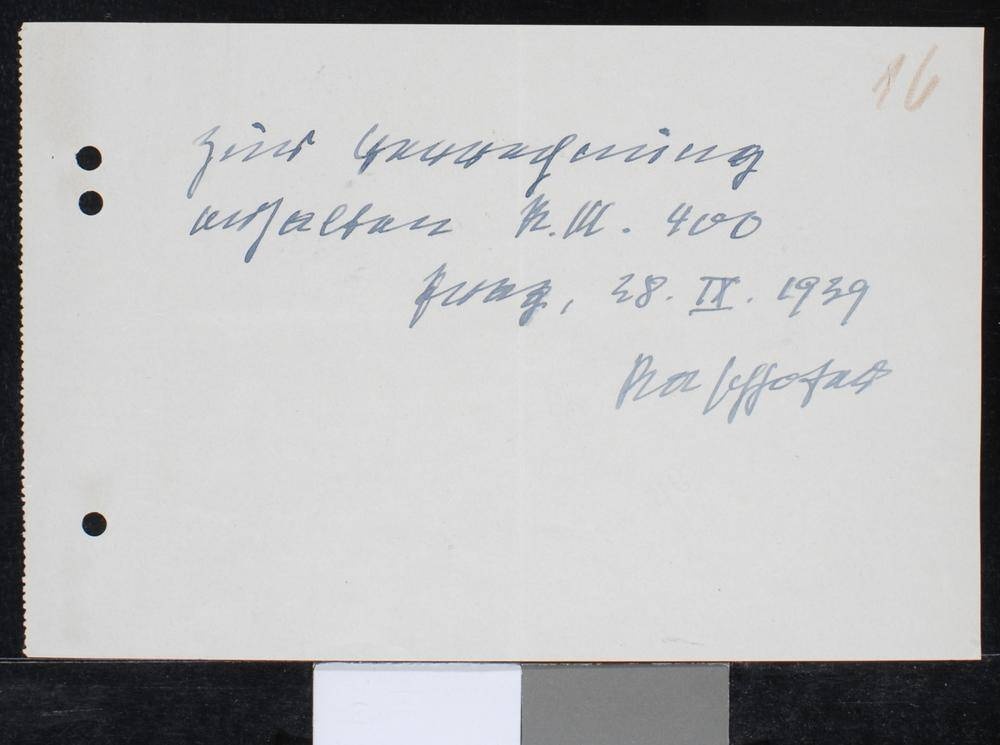 16
Zur Verrechnung
erhalten R.M. 400
Prag, 28. IX. 1939
Raschhofer